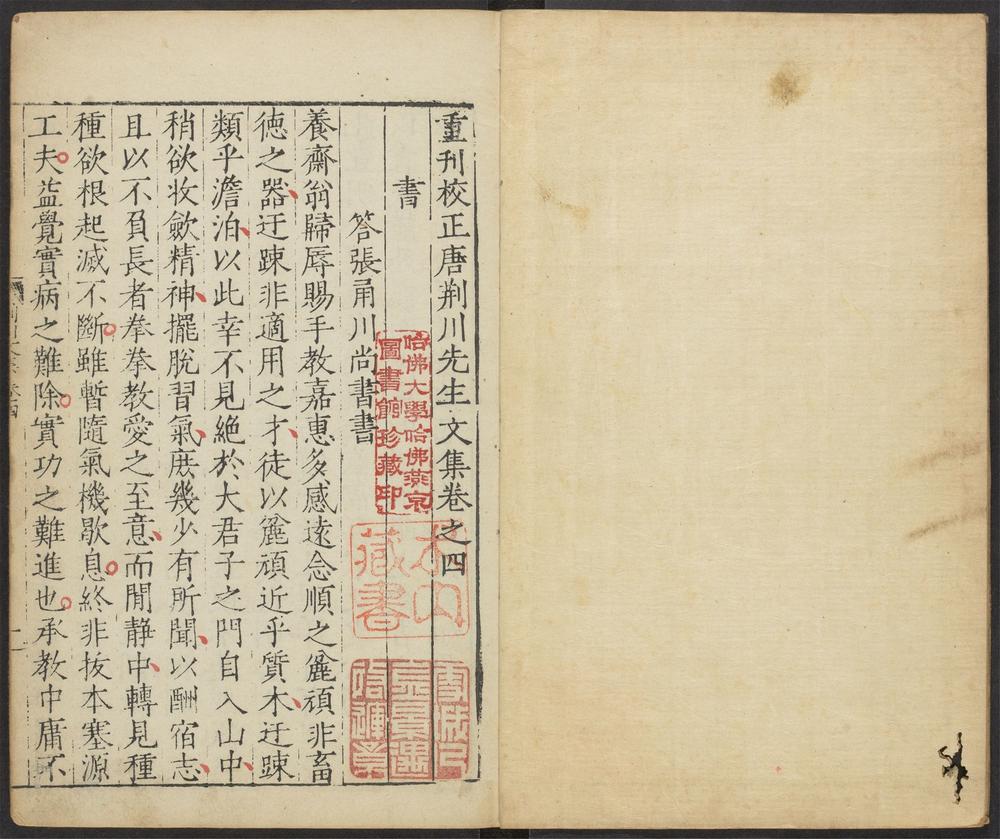 重刊校正唐荆川先生文集卷之四
書
答張甬川尚書書
養齋翁歸辱賜手教嘉惠多感遠念順之麄頑非畜
徳之器迂踈非適用之才徒以麄頑近乎質木迂踈
類乎澹泊以此幸不見絶於大君子之門自入山中
稍欲收歛精神擺脫習氣庻幾少有所聞以酬宿志
且以不負長者拳拳教愛之至意而閒静中轉見種
種欲根起滅不斷雖暫隨氣機歇息終非抜本塞源
工夫益覺實病之難除實功之難進也承教中庸不
哈佛大學哈佛燕京
圖書館珍藏印
藏書